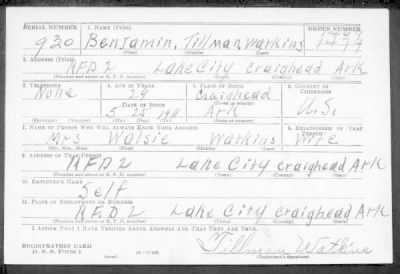 SERIAL NUMBER 1. NAME (Print) ORDER NUMBER
920 Benjamin, Tillman, Watkins 1499
(First) (Middle) (Last)
2. ADDRESS (Print)
RFD 2 Lake City Craighead Ark
(Number and street or R. F. D. number) (Town) (County) (State)
3. TELEPHONE 4. AGE IN YEARS 5. PLACE OF BIRTH 6. COUNTRY OF CITIZENSHIP
None 29 Craighead
(Town or county)
DATE OF BIRTH
5 25 1911 Ark U.S.
(Exchange) (Number) (Mo.) (Day) (Yr.) (State or country)
7. NAME OF PERSON WHO WILL ALWAYS KNOW YOUR ADDRESS 8. RELATIONSHIP OF THAT PERSON
Mrs Walsie Watkins Wife
(Mr., Mrs., Miss) (First) (Middle) (Last)
9. ADDRESS OF THAT PERSON
RFD 2 Lake City Craighead Ark
(Number and street or R. F. D. number) (Town) (County) (State)
10. EMPLOYER'S NAME
Self
11. PLACE OF EMPLOYMENT OR BUSINESS
R.F.D 2 Lake City Craighead Ark
(Number and street or R. F. D. number) (Town) (County) (State)
I AFFIRM THAT I HAVE VERIFIED ABOVE ANSWERS AND THAT THEY ARE TRUE.
REGISTRATION CARD
D. S. S. FORM 1 (over) 16-17105 Tillman Watkins
(Registrant's signature)